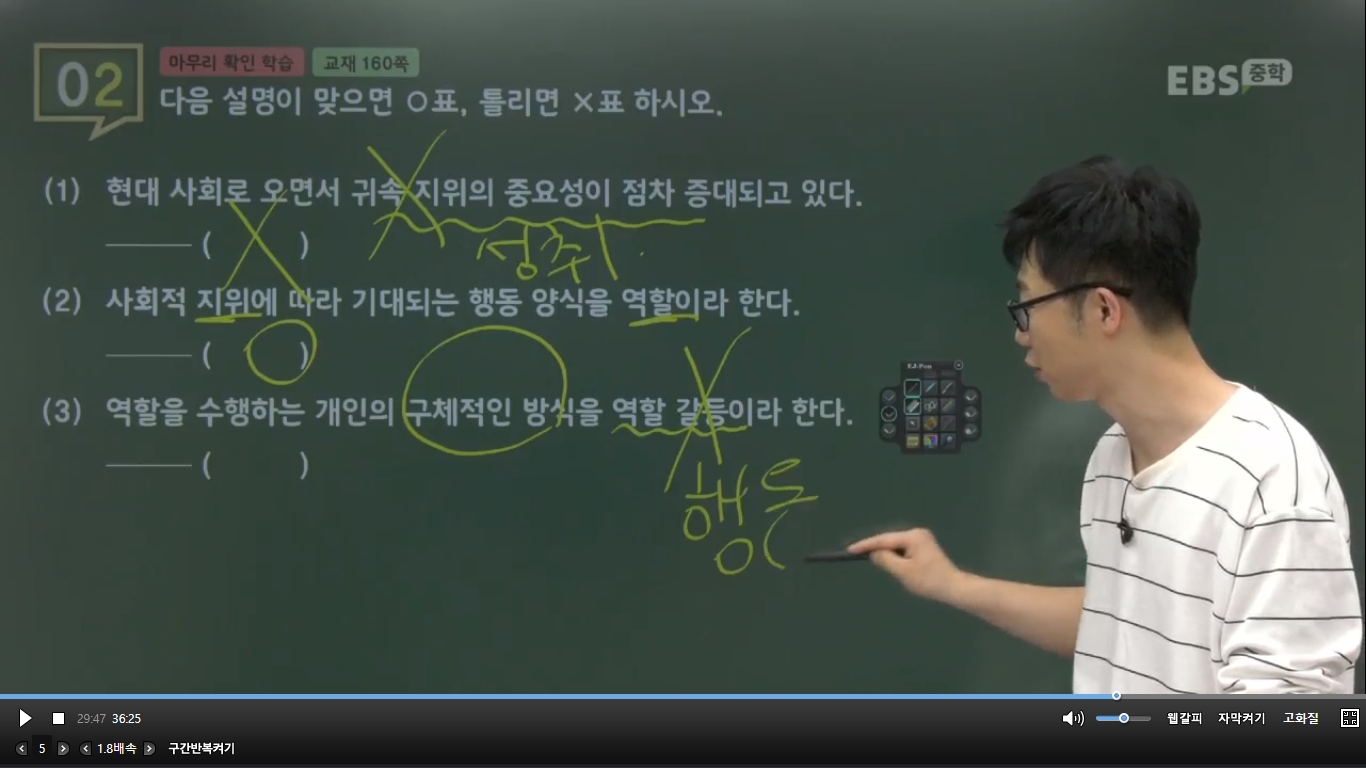 02 마무리 확인 학습 교재 160쪽
다음 설명이 맞으면 ○표, 틀리면 ×표 하시오.
EBS 중학
(1) 현대 사회로 오면서 귀속 지위의 중요성이 점차 증대되고 있다.
( X )
성취
(2) 사회적 지위에 따라 기대되는 행동 양식을 역할이라 한다.
( ○ )
EJ-Pen
(3) 역할을 수행하는 개인의 구체적인 방식을 역할 갈등이라 한다.
( )
행도
29:47 36:25 웹갈피 자막켜기 고화질
5 1.8배속 구간반복켜기